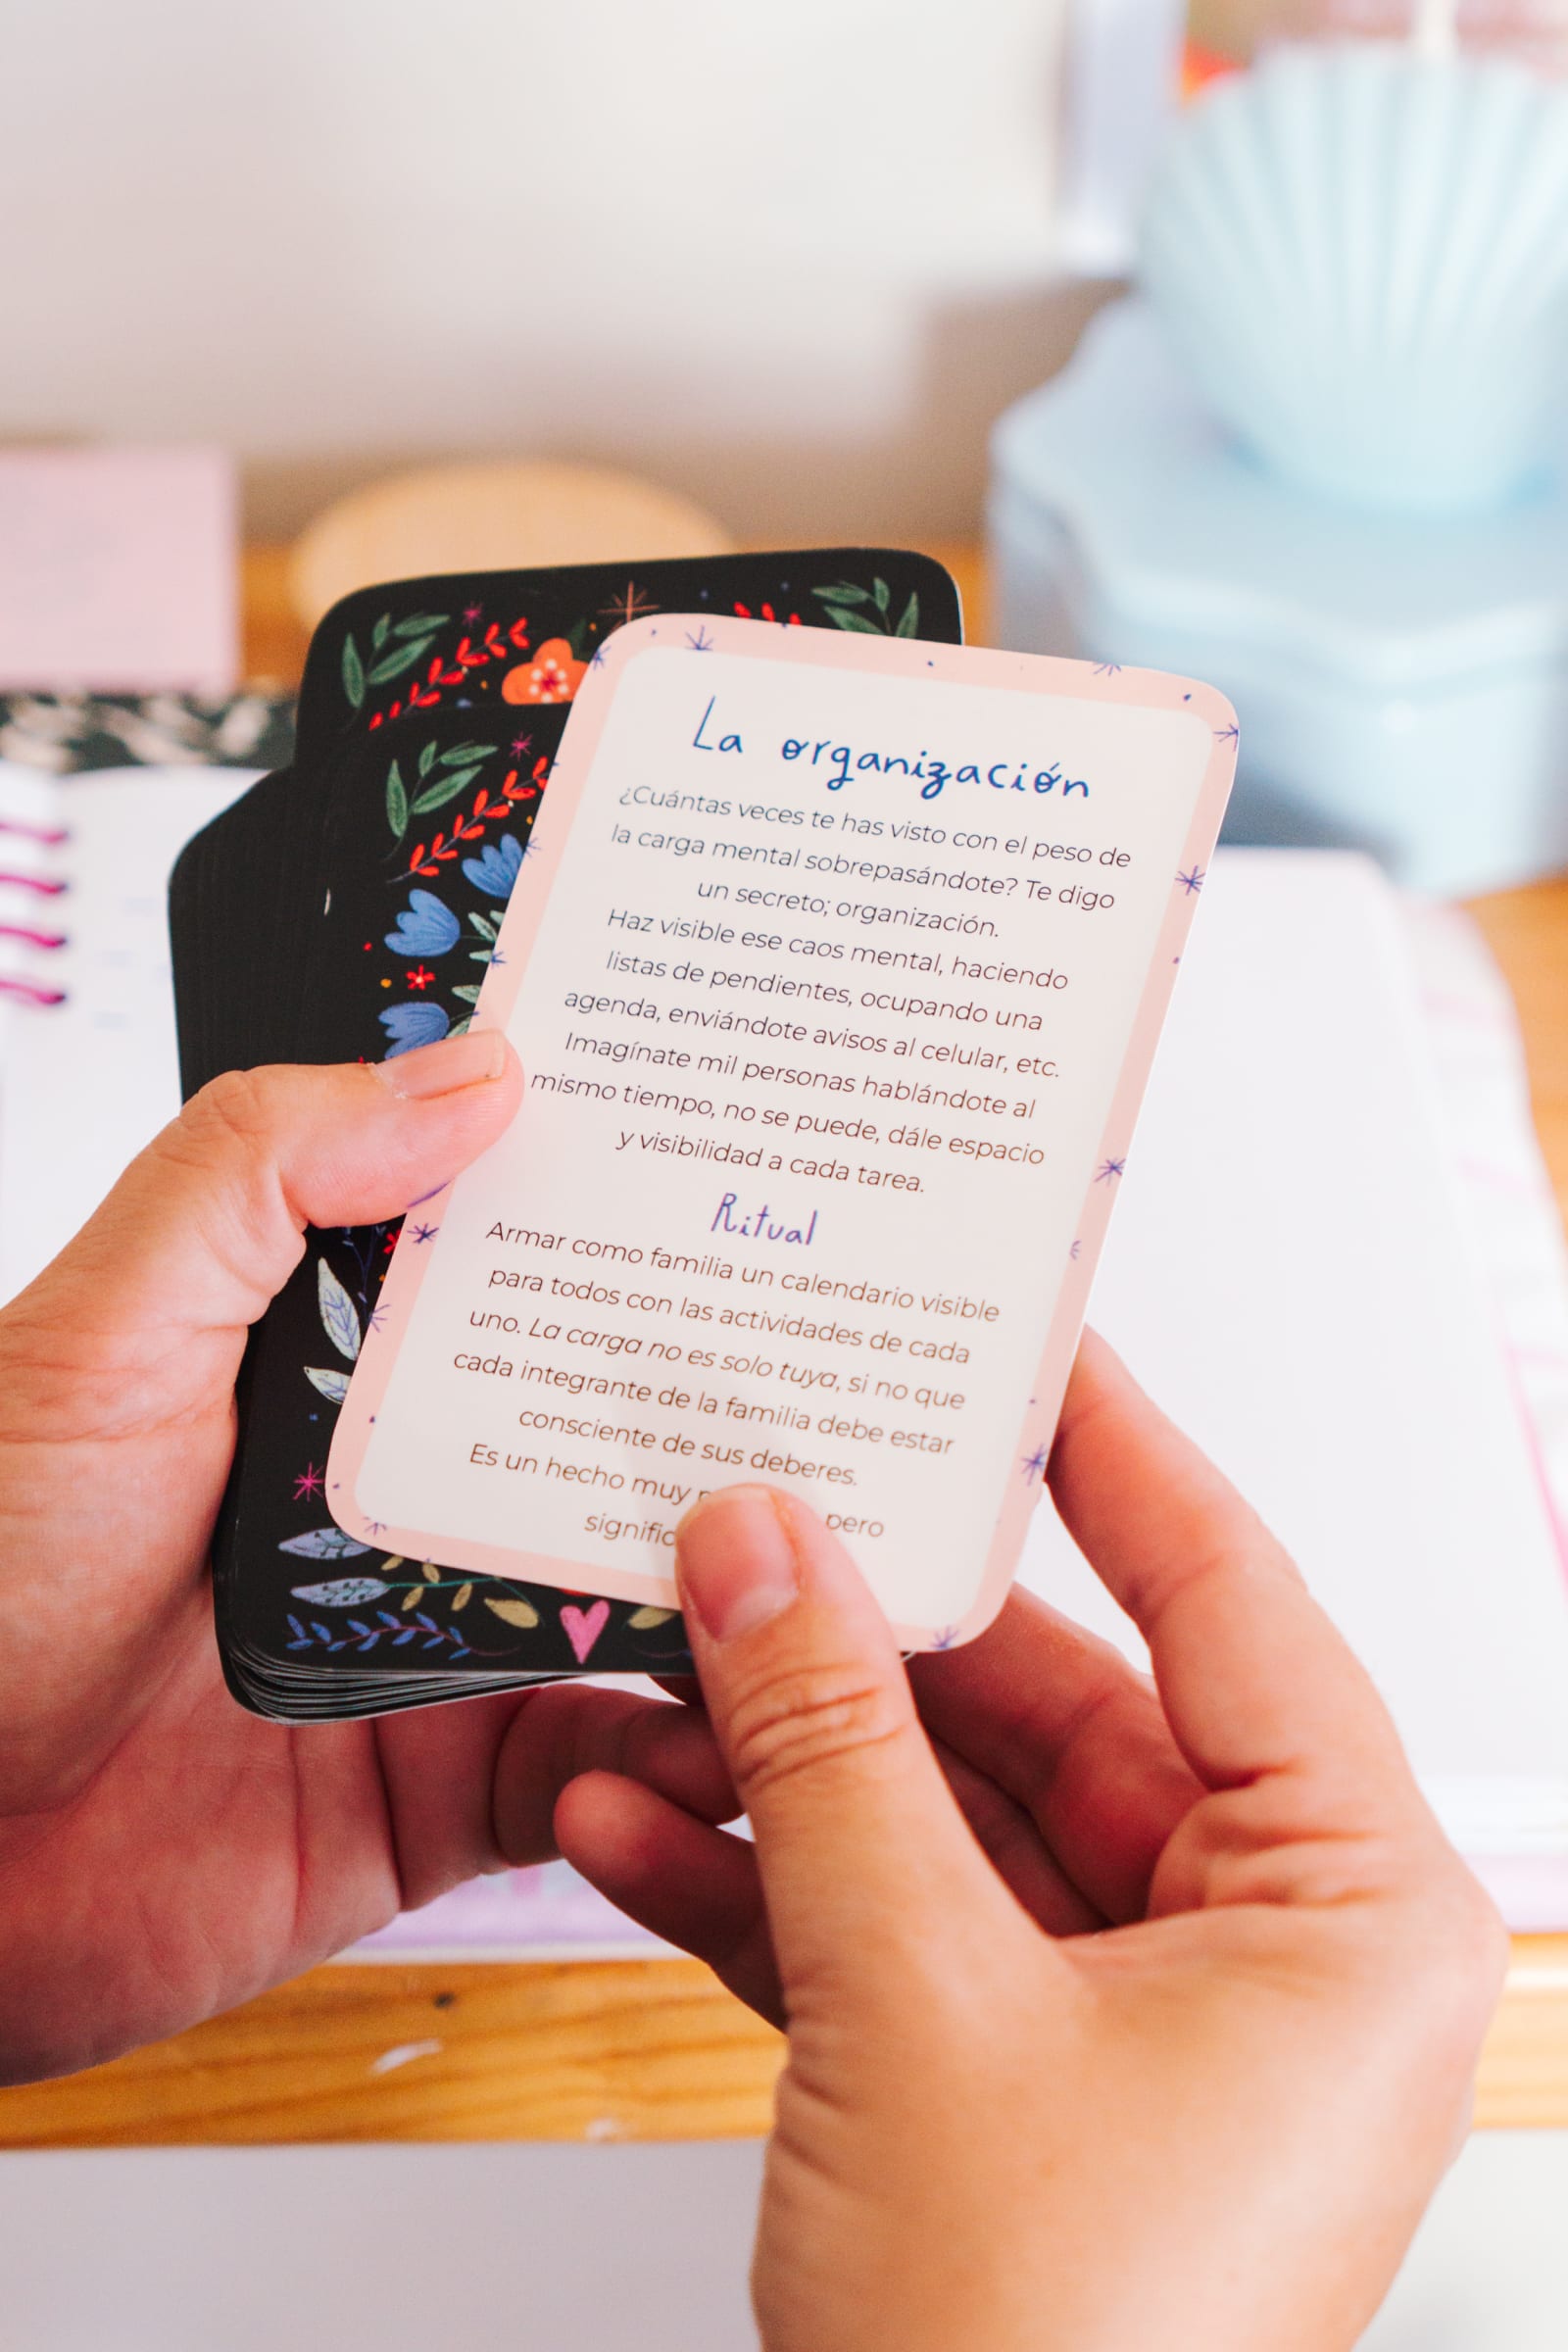 La organización
¿Cuántas veces te has visto con el peso de
la carga mental sobrepasándote? Te digo
un secreto; organización.
Haz visible ese caos mental, haciendo
listas de pendientes, ocupando una
agenda, enviándote avisos al celular, etc.
Imagínate mil personas hablándote al
mismo tiempo, no se puede, dále espacio
y visibilidad a cada tarea.
Ritual
Armar como familia un calendario visible
para todos con las actividades de cada
uno. La carga no es solo tuya, si no que
cada integrante de la familia debe estar
consciente de sus deberes.
Es un hecho muy pero